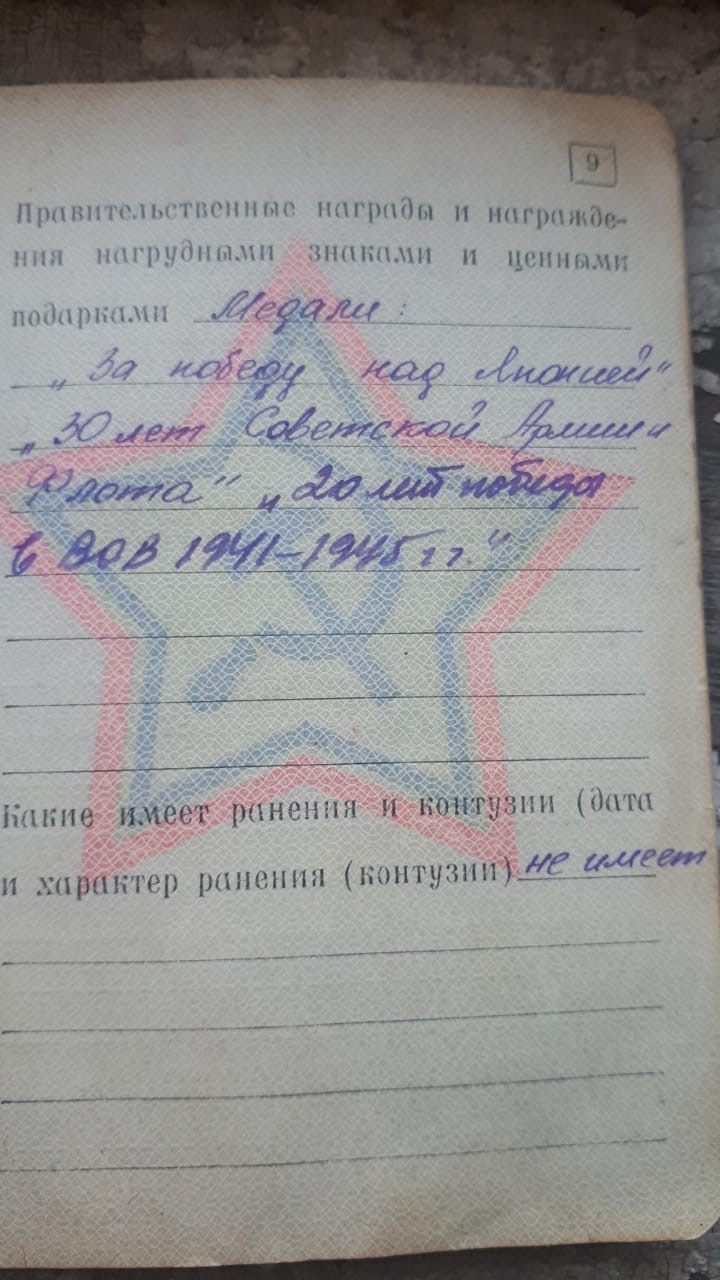 9
Правительственные награды и награжде-
ния нагрудными знаками и ценными
подарками Медали:
„За победу над Японией"
„30 лет Советской Армии и
Флота" „20 лет победы
в ВОВ 1941–1945 гг."
Какие имеет ранения и контузии (дата
и характер ранения (контузии) не имеет